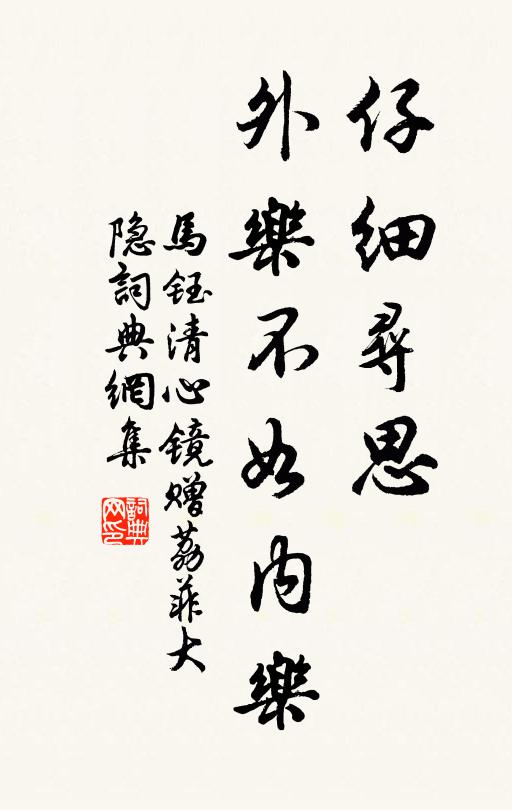 仔细尋思
外樂不如内樂
馬鈺清心镜赠荔菲大
隐詞典網集
詞典网印